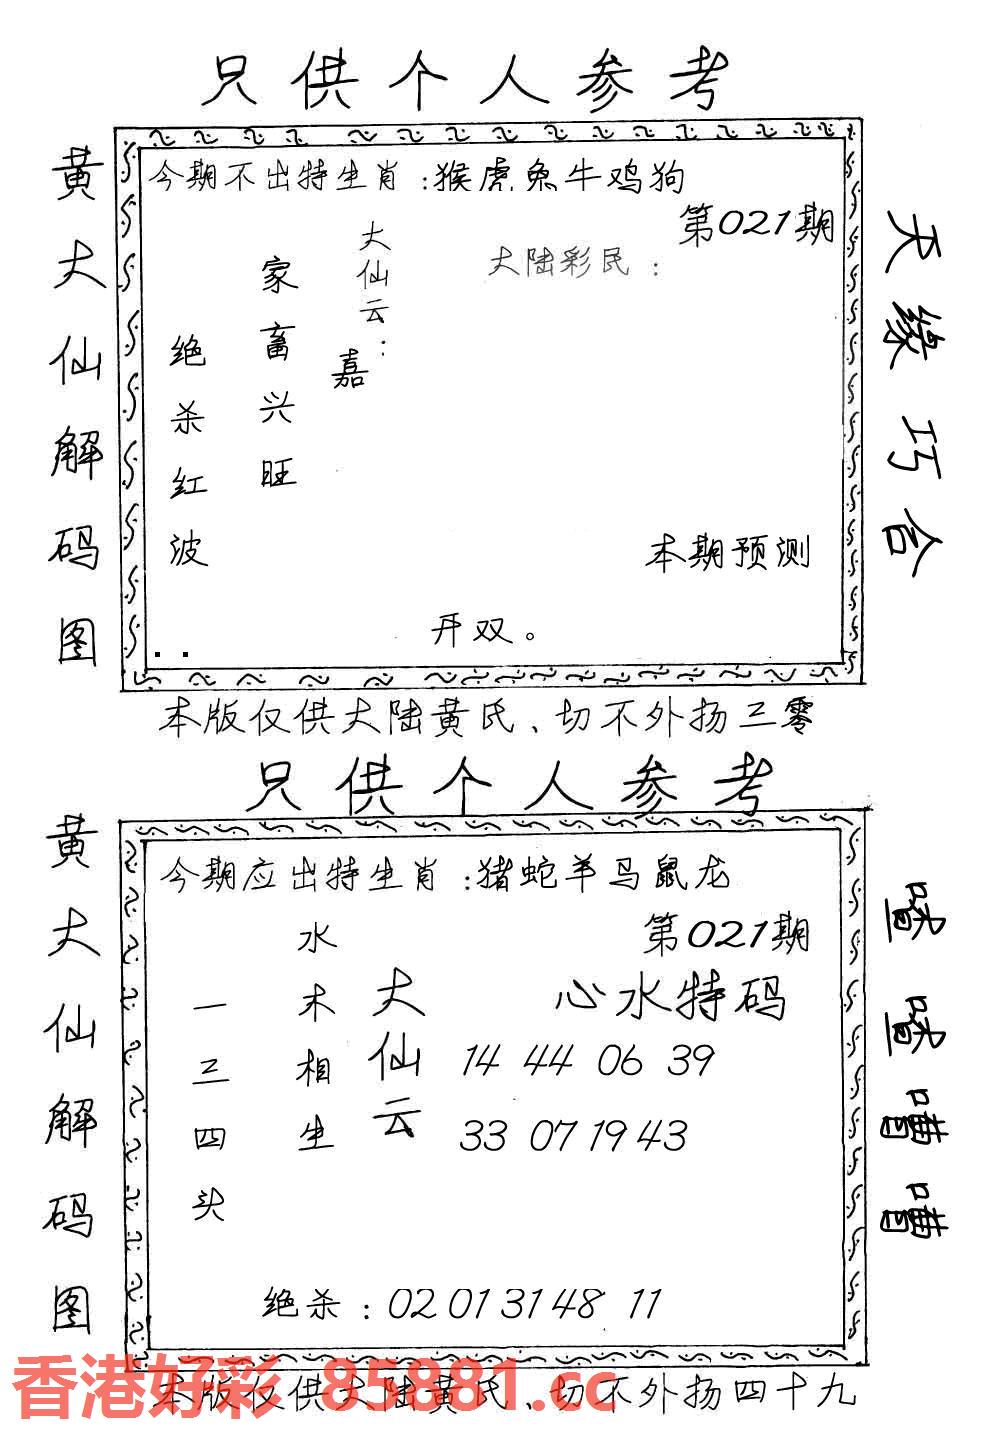 只供个人参考
黄大仙解码图
今期不出特生肖:猴虎兔牛鸡狗
第021期
大陆彩民:
大仙云:
嘉
家畜兴旺
绝杀红波
本期预测
开双。
天缘巧合
本版仅供大陆黄氏、切不外扬三零
只供个人参考
黄大仙解码图
今期应出特生肖:猪蛇羊马鼠龙
第021期
心水特码
大仙云
水木相生
一三四头
14 44 06 39
33 07 19 43
绝杀:02 01 31 48 11
香港好彩 85881.cc
本版仅供大陆黄氏、切不外扬四十九